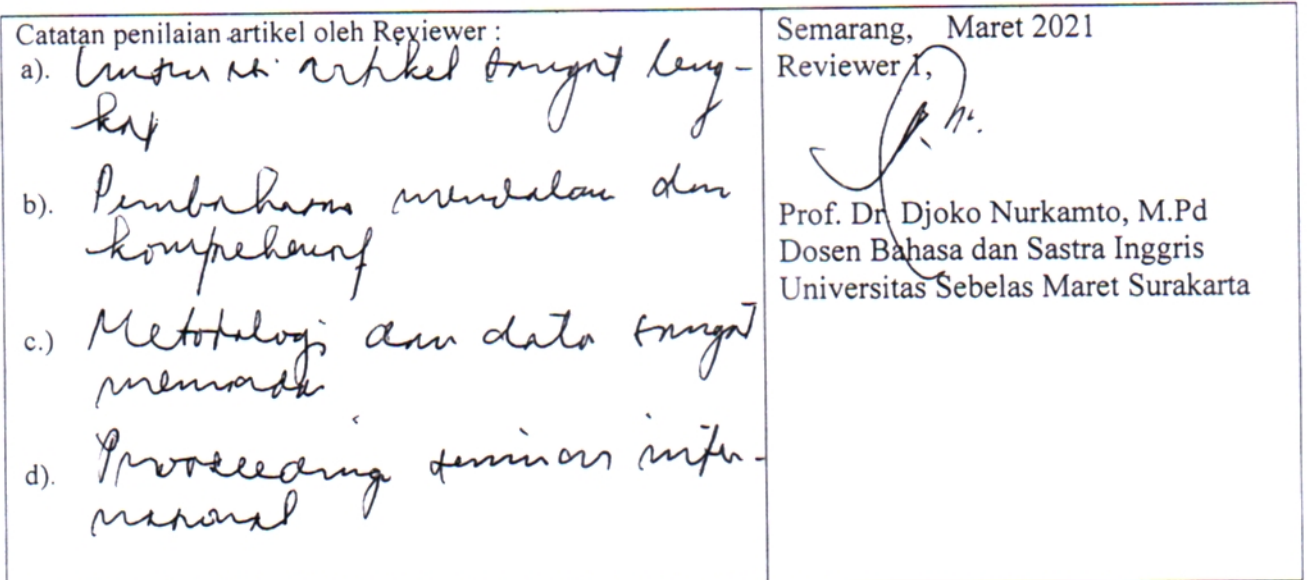 Catatan penilaian artikel oleh Reviewer :
a). Unsur isi artikel sangat leng-
kap
b). Pembahasan mendalam dan
komprehensif
c.) Metodologi dan data sangat
memadai
d). Prosceeding seminar inter-
nasional
Semarang, Maret 2021
Reviewer 1,
Prof. Dr. Djoko Nurkamto, M.Pd
Dosen Bahasa dan Sastra Inggris
Universitas Sebelas Maret Surakarta